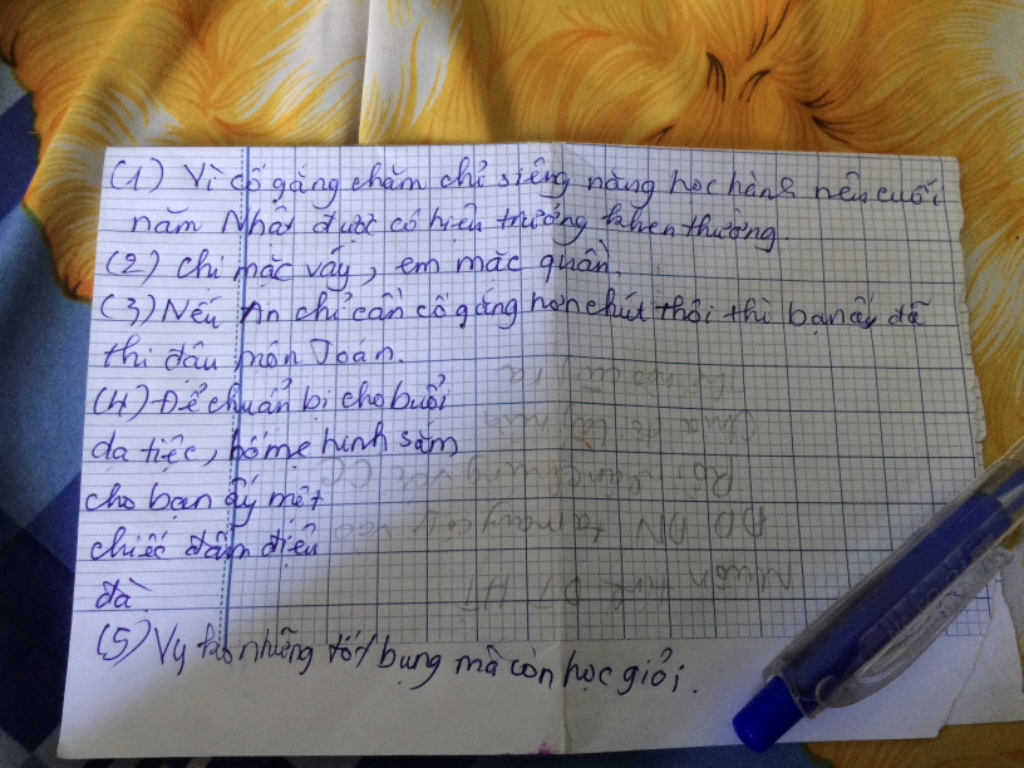 (1) Vì cố gắng chăm chỉ siêng năng học hành nên cuối
năm Nhật được cô hiệu trưởng khen thưởng
(2) Chị mặc váy, em mặc quần.
(3) Nếu An chỉ cần cố gắng hơn chút thôi thì bạn ấy đã
thi đậu môn Toán.
(4) Để chuẩn bị cho buổi
dạ tiệc, bố mẹ hình sắm
cho bạn ấy một
chiếc đầm điệu
đà
(5) Vy không những tốt bụng mà còn học giỏi.